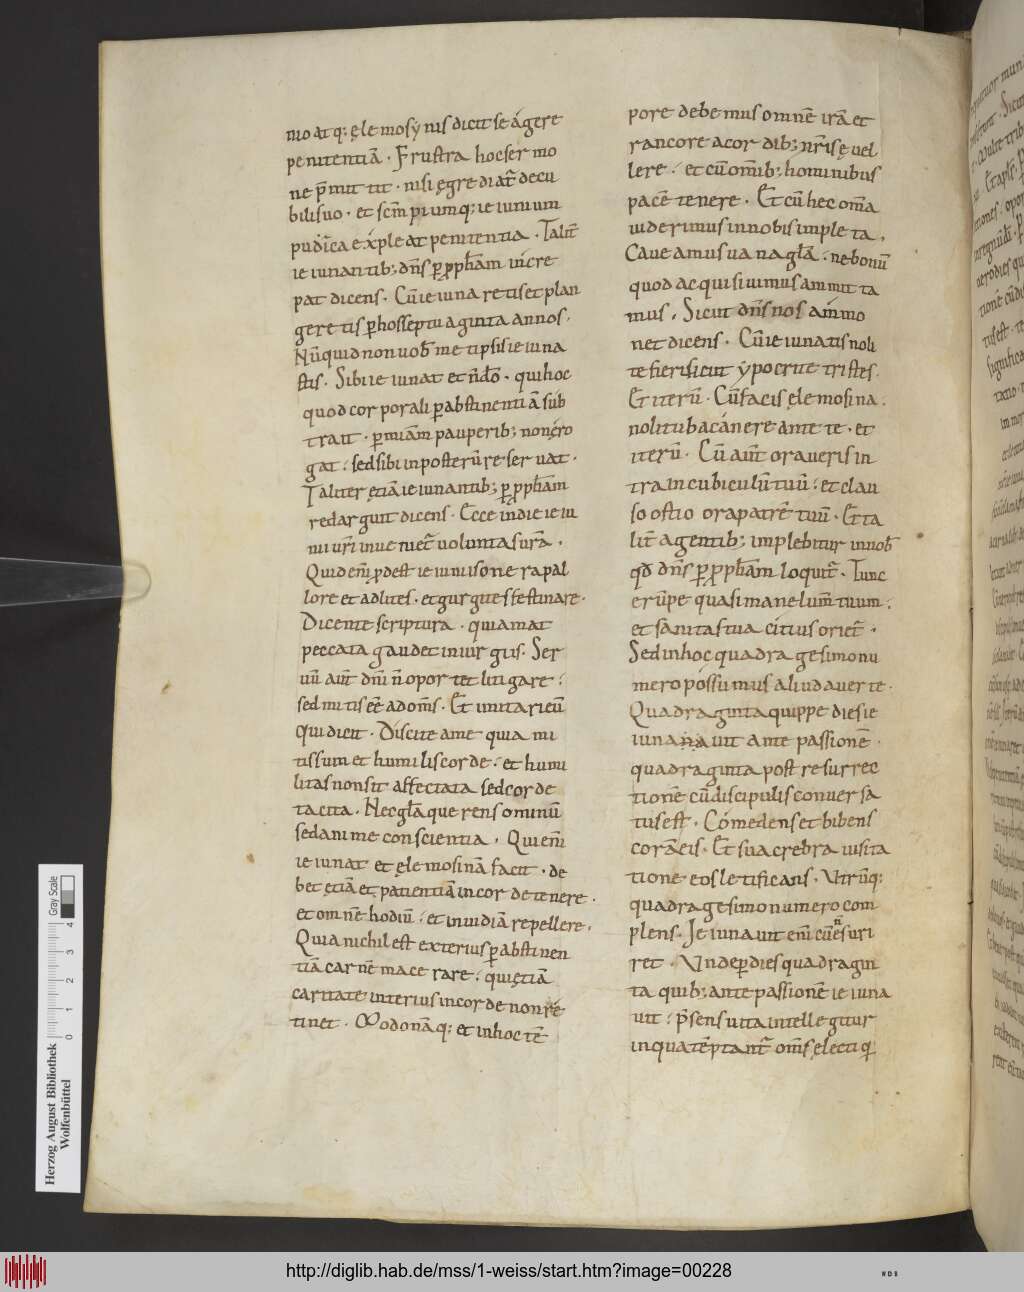 mo atq; ęlemosynis dicit se ágere
penitentiā · Frustra hoc sermo
ne p̄mittit · nisi ęgrediat̄ de cu
bili suo · et sc̄m piumq; ieiunium
pudica expleat penitentia · Talit̄
ieiunantib; dn̄s p prophetam incre
pat dicens · Cū ieiunaretis et plan
geretis p hos septuaginta annos ·
Nūquid non uob̄ metipsis ieiuna
stis · Sibi ieiunat et n̄ dō · qui hoc
quod corporali p abstinentiā sub
trait · p̄miam pauperib; non ęro
gat · sed sibi in posterū reseruat ·
Taliter ętiā ieiunantib; p pph̄am
redarguit dicens · Ecce in die ieiu
nii ur̄i inuenit̄ uoluntas ur̄a ·
Quid enī pdest ieiuniis one rapal
lore et ad lites · et gurguites festinare ·
Dicente scriptura · qui amat
peccata gaudet in iurgiis · Ser
uū aut̄ dn̄i n̄ oportet litigare ·
sed mitis eē ad om̄s · Et imitari eū
qui dicit · Discite a me quia mi
tis sum et humilis corde · et humi
litas non sit affectata sed corde
tacita · Nec glā querens ominū
sed anime conscientia · Qui enī
ieiunat et ęlemosinā facit · de
bet ętiā et patientiā in corde tenere ·
et omnē hodiū · et inuidiā repellere ·
Quia nichil est exterius p abstinen
tiā carnē macerare · qui ętiā
caritate interius in corde non re
tinet · Modonāq; et in hoc tē
pore debemus omnē irā et
rancore a cordib; nr̄is ęuel
lere · et cū om̄ib; hominibus
pacē tenere · Et cū hec om̄a
uiderimus in nobis impleta ·
Caueamus uana glā · ne bonū
quod acquisiuimus ammitta
mus · Sicut dn̄s nos ammo
net dicens · Cū ieiunatis noli
te fieri sicut ypocrite tristes ·
Et iterū · Cū facis ęlemosina ·
noli tuba canere ante te · et
iterū · Cū aut̄ oraueris in
tra in cubiculū tuū · et clau
so ostio ora patrē tuū · Et ta
lit̄ agentib; implebitur in nob̄
qd̄ dn̄s p pph̄am loquit̄ · Tunc
erūpe quasi mane lum̄ tuum ·
et sanitas tua citius oriet̄ ·
Sed in hoc quadragesimo nu
mero possumus aliud auerte ·
Quadraginta quippe dies ie
iuna na uit ante passionē ·
quadraginta post resurrec
tionē cū discipulis conuersa
tus est · Comedens et bibens
corā eis · Et sua crebra uisita
tione eos letificans · Utrūq;
quadragesimo numero com
plens · Ieiunauit enī cū esuri
ret · Unde p dies quadragin
ta quib; ante passionē ieiuna
uit · p̄sens uita intellegitur
in qua tēptant̄ om̄s electi q
Herzog August Bibliothek
Wolfenbüttel
0 1 2 3 4
Gray Scale
http://diglib.hab.de/mss/1-weiss/start.htm?image=00228